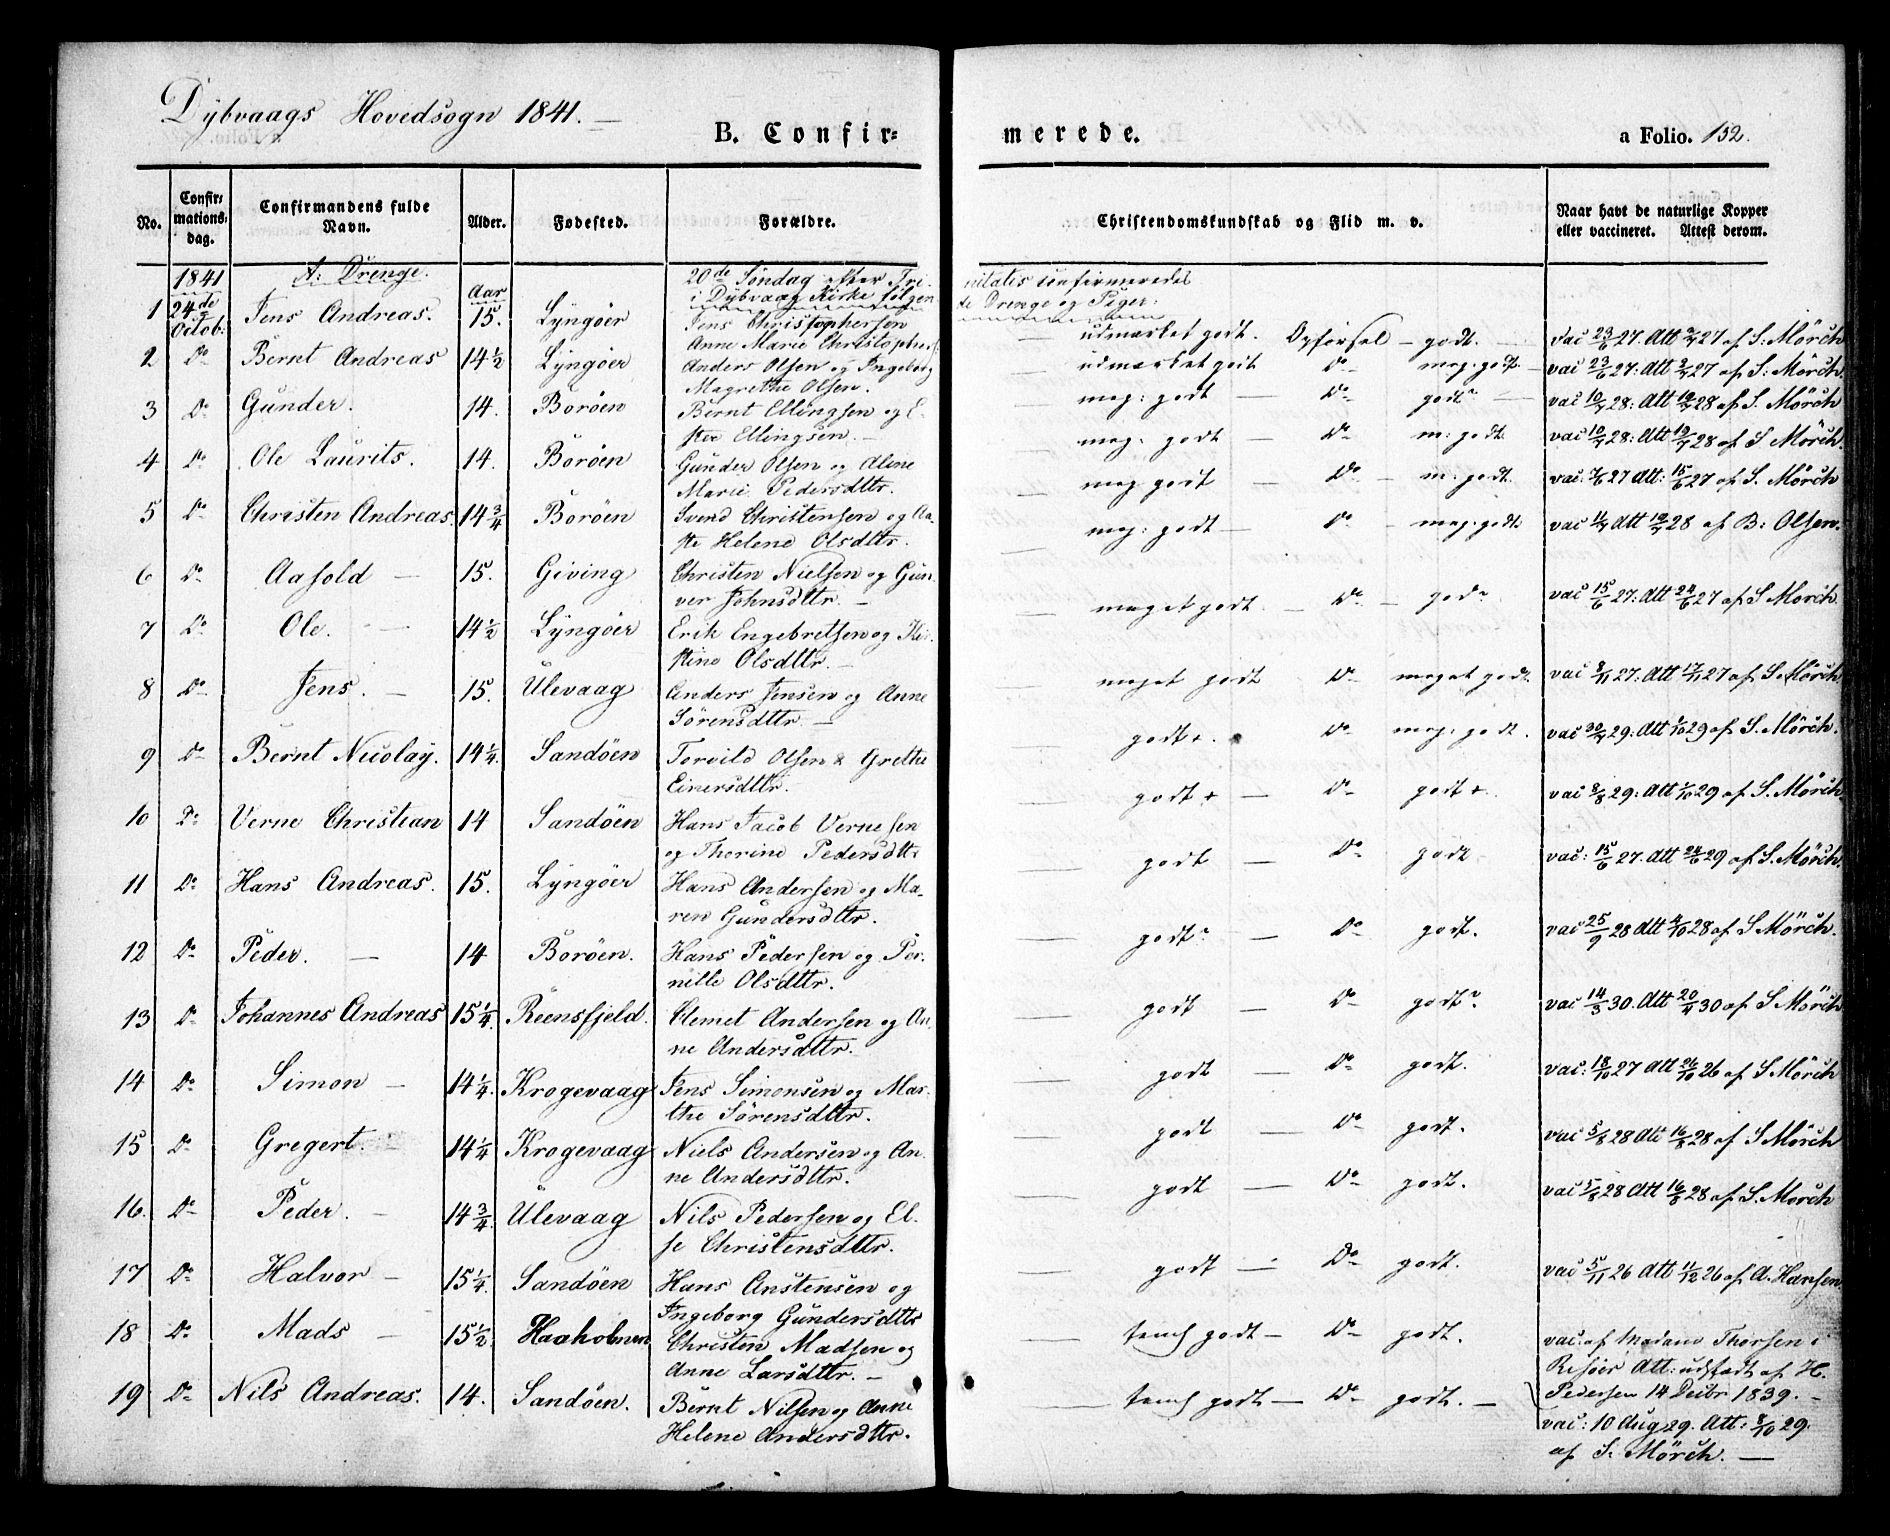 Dybvaags Hovedsogn 1841.
B. Confirmerede.
a Folio. 152.
No. Confirmations-dag. Confirmandens fulde Navn. Alder. Fødested. Forældre. Christendomskundskab og Flid m. v. Naar havt de naturlige Kopper eller vaccineret. Attest derom.
1841 A: Drenge. Aar 20de Søndag efter Trinitatis confirmeredes
i Dybvaag Kirke følgende Drenge og Piger:
1 24de Octob: Jens Andreas. 15. Lyngöer Jens Christophersen Anne Marie udmærket godt. Opförsel – godt. vac 23/6 27. Att 2/7 27 af S. Mörch
2 Do Bernt Andreas 14 1/2 Lyngöer Anders Olsen og Ingeborg Magrethe Olsen. udmærket godt Do meg: godt. vac 23/6 27: Att 2/7 27 af S: Mörch
3 Do Gunder. 14. Boröen Bernt Ellingsen og Ester Ellingsen. meg: godt Do godt vac 10/7 28: Att 19/7 28 af S. Mörch
4 Do Ole Laurits. 14. Boröen Gunder Olsen og Alene Marie Pedersdttr. meg: godt – Do m: godt vac 10/7 28: Att 19/7 28 af S Mörch.
5 Do Christen Andreas 14 3/4 Boröen Svend Christensen og Aaste Helene Olsdttr. meg godt – Do – m: godt. vac: 7/6 27 Att: 15/6 27 af S. Mörch
meg: godt – Do – meg: godt vac Att 28 af B: Olsen.
6 Do Aasold – 15. Giving Christen Nielsen og Gunver Johnsdttr. – meget godt. – Do – godt vac 15/6 27: Att 24/6 27 af S Mörch
7 Do Ole. – 14 1/2 Lyngöer Erik Engebretsen og Kirstine Olsdttr. – meget godt Do meget godt. vac 8/11 27. Att 17/11 27 af S. Mörch
8 Do Jens. – 15. Ulevaag Anders Jensen og Anne Sörensdttr. – godt +. Do meg: godt. vac 29: Att 1/10 29 af S. Mörch.
9 Do Bernt Nicolay. 14 1/4. Sandöen Torvild Olsen & Grethe Einersdttr. godt + – Do godt +. vac 2/8 29: Att 1/10 29 af S. Mörch
10 Do Verne Christian 14 Sandöen Hans Jacob Vernesen og Thorine Pedersdttr godt – Do godt vac: 15/6 27. Att 24/6 29 af S. Mörch.
11 Do Hans Andreas. 15. Lyngöer Hans Andersen og Maren Gundersdttr. godt – Do godt. vac 25/9 28 Att 4/10 28 af S Mörch.
12 Do Peder. – 14 Boröen. Hans Pedersen og Pernille Olsdttr. godt – Do godt vac 14/3 30. Att 20/4 30 af S Mörch
13 Do Johannes Andreas 15 1/4. Reensfjeld. Clemet Andersen og Anne Andersdttr. godt – Do godt. vac: 18/10 27 Att 26/10 26 af S Mörch
14 Do Simon – 14 1/4. Krogevaag Jens Simonsen og Marthe Sörensdttr. godt – Do godt. vac 5/8 28 Att 16/8 28 af S Mörch
15 Do Gregert. – 14 1/4 Krogevaag Niels Andersen og Anne Andersdttr. godt – Do godt. vac 5/8 28 Att 16/8 28 af S. Mörch
16. Do Peder. – 14 3/4. Ulevaag Nils Pedersen og Else Christensdttr. godt – Do godt. vac 5/11 26 Att 11/12 26 af A. Hansen
17 Do Halvor – 15 1/4. Sandöen Hans Anstensen og Ingeborg Gundersdttr
18 Do Mads – 15 1/2. Haaholmen Christen Madsen og Anne Larsdttr. – temS godt – Do godt. vac: af Madam Thorsen i Risöer Att: udstædt af H. Pedersen 14 Decbr. 1839. –
19 Do Nils Andreas. 14. Sandöen. Bernt Nilsen og Anne Helene Andersdttr. temS godt – Do godt. – vac: 10 Aug 29. Att: 8/10 29. af S. Mörch. –